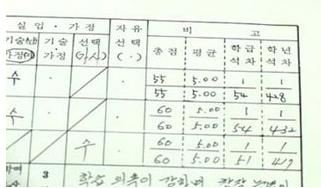 실업·가정 자유 비 고
기술(남) 기술 선택 선택 총점 평균 학급 학년
가정(여) 가정 (가.사) (·) 석차 석차
수 55 5.00 1 1
55 5.00 54 428
수 60 5.00 1 1
60 5.00 54 432
수 60 5.00 1 1
60 5.00 51 417
3 학습 의욕이 강하며